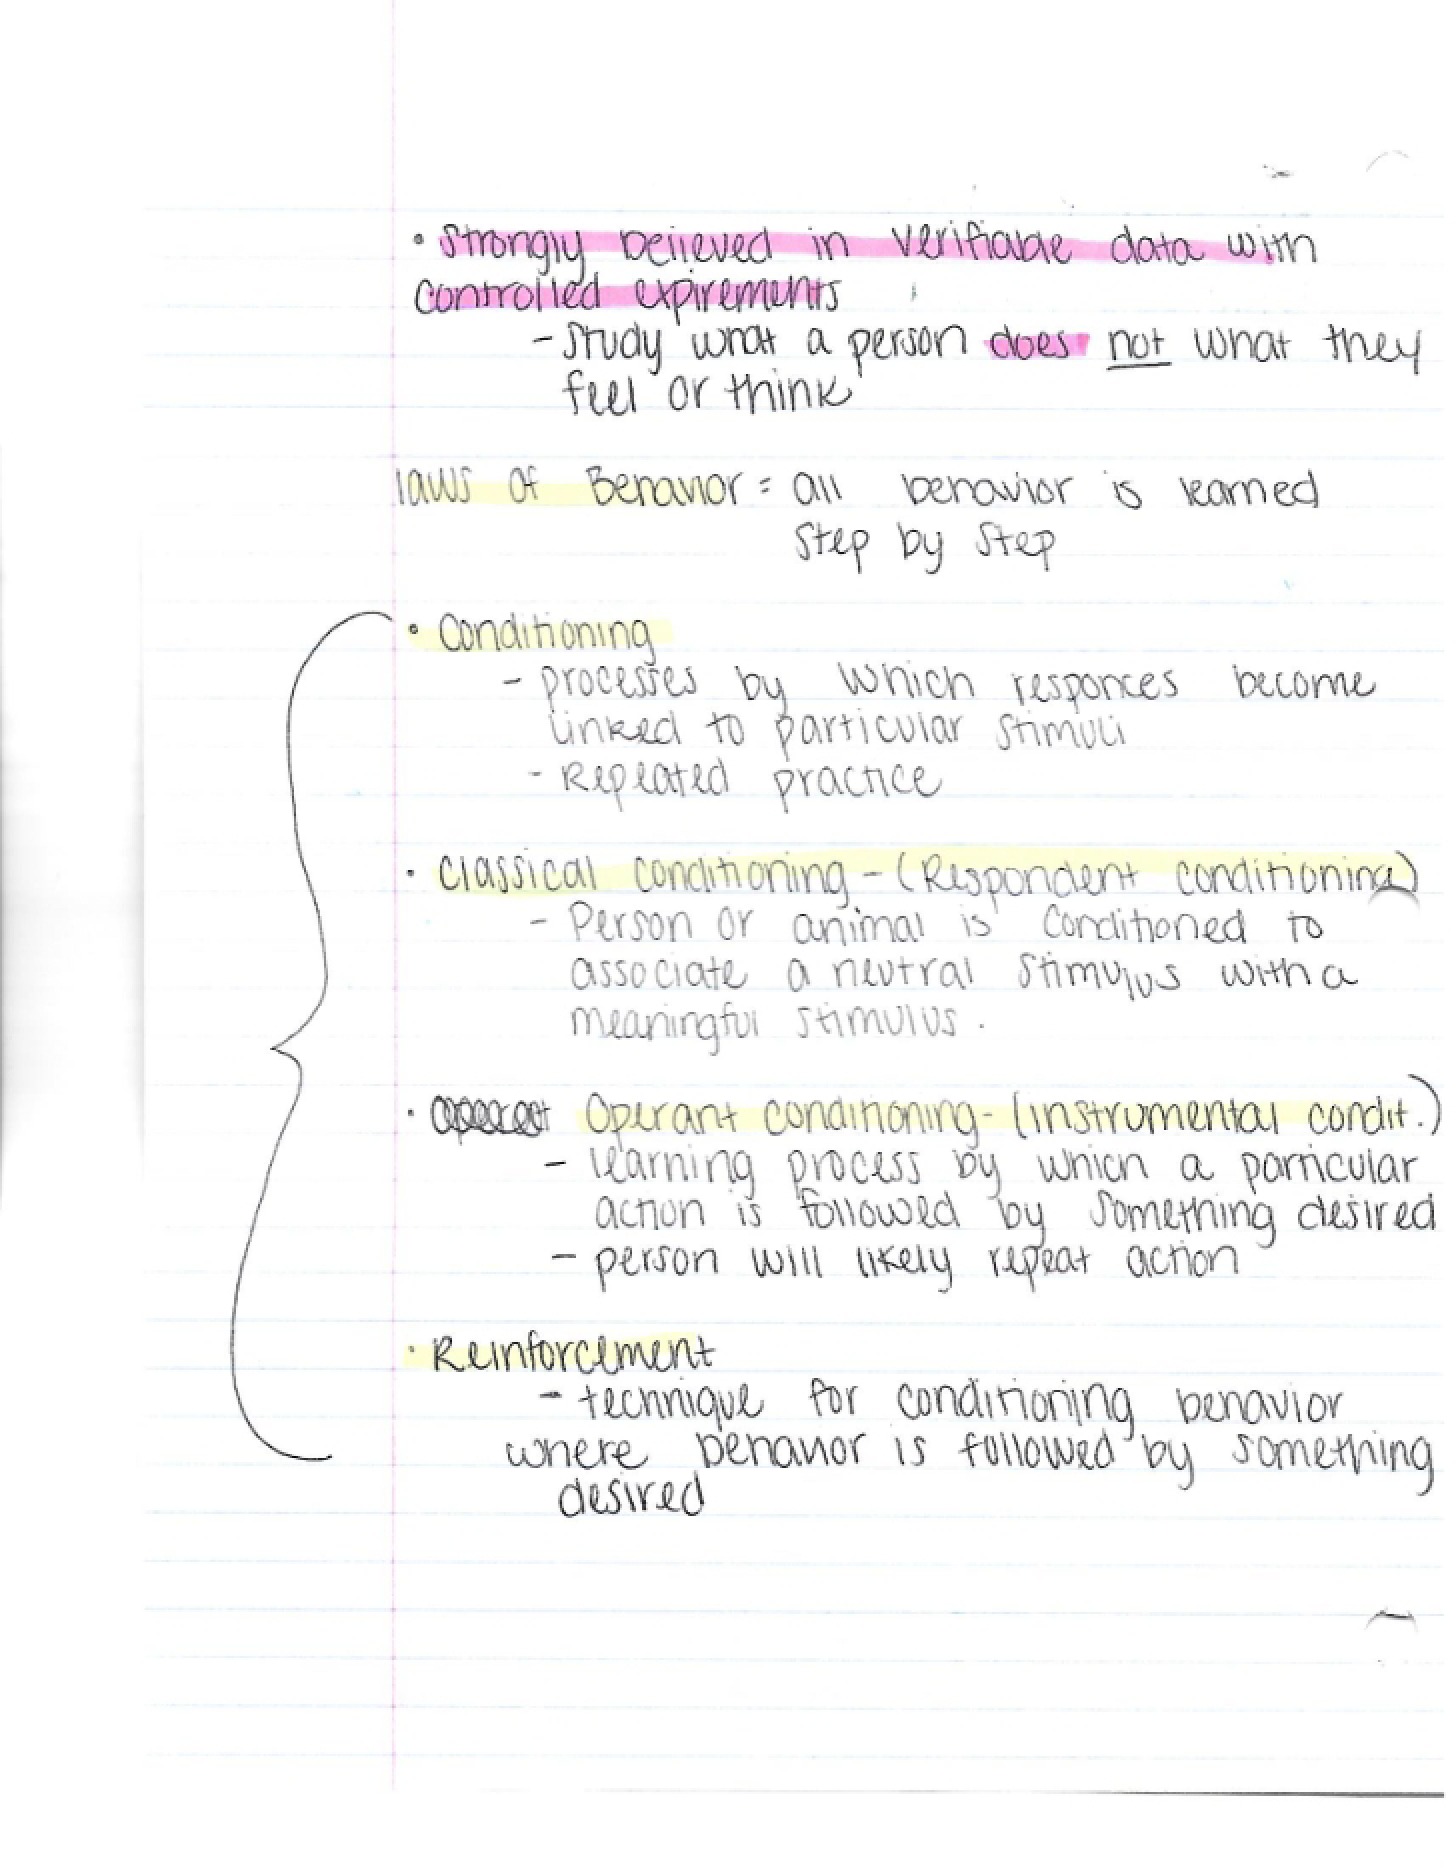 • Strongly believed in verifiable data with
controlled expirements
- Study what a person does not what they
feel or think
laws of Behavior = all behavior is learned
Step by Step
• Conditioning
- processes by which responces become
linked to particular stimuli
- Repeated practice
• Classical conditioning - (Respondent conditioning)
- Person or animal is conditioned to
associate a neutral stimulus with a
meaningful stimulus.
• Operant conditioning - (instrumental condit.)
- learning process by which a particular
action is followed by something desired
- person will likely repeat action
• Reinforcement
- technique for conditioning behavior
where behavior is followed by something
desired